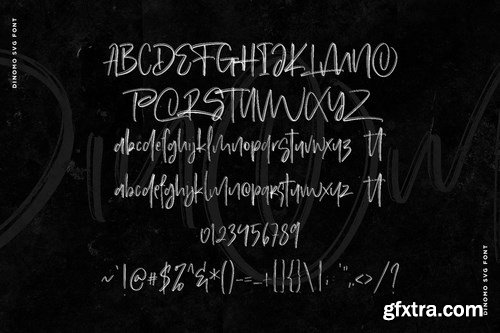 DINOMO SVG FONT
ABCDEFGHIJKLMNO
PQRSTUVWXYZ
abcdefghijklmnopqrstuvwxyz tt
abcdefghijklmnopqrstuvwxyz tt
0123456789
~`!@#$%^&*()-=_+[]{}\|,.:'",.<>/?
DINOMO SVG FONT
gfxtra.com